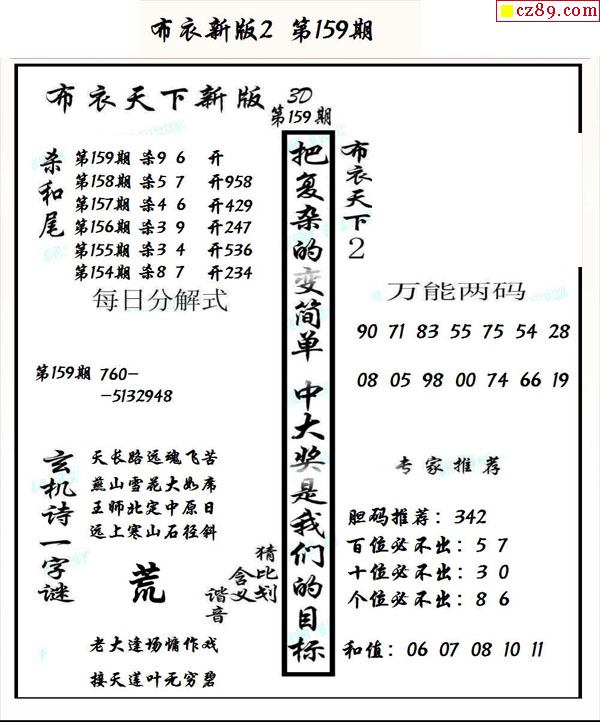 cz89.com
布衣新版2 第159期
布衣天下新版 3D
第159期
杀和尾
第159期 杀9 6 开
第158期 杀5 7 开958
第157期 杀4 6 开429
第156期 杀3 9 开247
第155期 杀3 4 开536
第154期 杀8 7 开234
每日分解式
第159期 760-
-5132948
玄机诗一字谜
天长路远魂飞苦
燕山雪花大如席
王师北定中原日
远上寒山石径斜
荒
猜比划
含义
谐音
老大逢场慵作戏
接天莲叶无穷碧
把复杂的变简单 中大奖是我们的目标
布衣天下2
万能两码
90 71 83 55 75 54 28
08 05 98 00 74 66 19
专家推荐
胆码推荐：342
百位必不出：5 7
十位必不出：3 0
个位必不出：8 6
和值：06 07 08 10 11